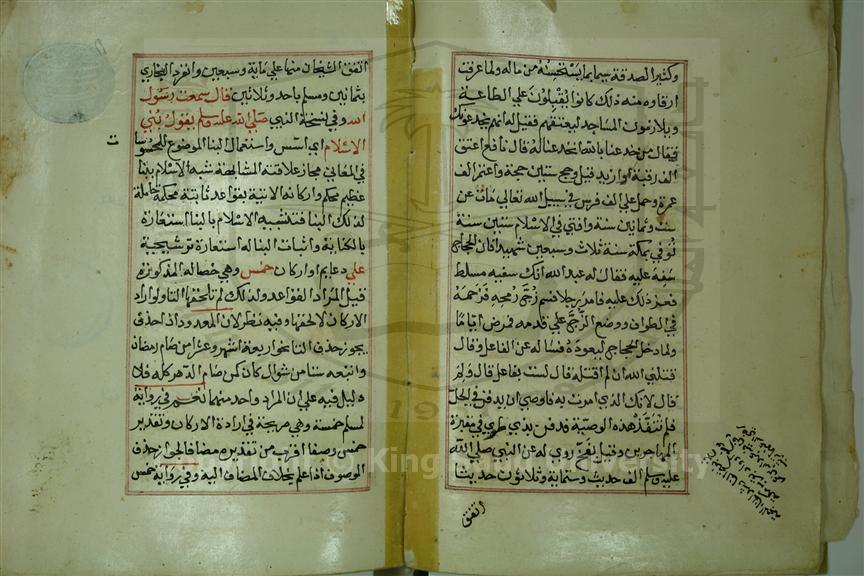 وكثير الصدقة سيما بما يستحسنه من ماله ولما عرفت
ارقاؤه منه ذلك كانوا يقبلون علي الطاعة
ويلازمون المساجد ليعتقهم فقيل له انهم يخدعونك
فقال من خدعنا بالله انخدعنا له قال نافع اعتق
الف رقبة او ازيد قيل وحج ستين حجة واعتمر الف
عمرة وحمل علي الف فرس في سبيل الله تعالي مات عن
ست وثمانين سنة وافتي في الاسلام ستين سنة
توفي بمكة سنة ثلاث وسبعين شهيدا فان الحجاج
سفه عليه فقال له عبد الله انك سفيه مسلط
فعز ذلك عليه فامر رجلا فسم زج رمحه فزحمه
في الطواف ووضع الزج علي قدمه فمرض اياما
ولما دخل الحجاج ليعوده فساله عن الفاعل وقال
قتلني الله ان لم اقتله قال لست بفاعل قال ولم
قال لانك الذي امرت به فاوصي ان يدفن في الحل
فلم تنفذ هذه الوصية فدفن بذي طوي في مقبرة
المهاجرين وقيل بفخ روي له عن النبي صلي الله
عليه وسلم الف حديث وستماية وثلاثون حديثا
اتفق
اتفق الشيخان منها علي ماية وسبعين وانفرد البخاري
بثمانين ومسلم باحد وثلاثين قال سمعت رسول
الله وفي نسخة النبي صلي الله عليه وسلم يقول بني
الاسلام اي اسس واستعمال البنا الموضوع للمحسوسات
في المعاني مجاز علاقته المشابهة شبه الاسلام ببنا
عظيم محكم واركانه الاتية بقواعد ثابتة محكمة حاملة
لذلك البنا فتشبيه الاسلام بالبنا استعارة
بالكناية واثبات البنا له استعارة ترشيحية
علي دعايم او اركان خمس وهي خصاله المذكورة
قيل المراد القواعد ولذلك لم تلحقها التا ولو اراد
الاركان لالحقها وفيه نظر لان المعدود اذا حذف
يجوز حذف التا نحو اربعة اشهر وعشرا من صام رمضان
واتبعه ستا من شوال كان كمن صام الدهر كله فلا
دليل فيه علي ان المراد واحد منهما نعم في رواية
لمسلم خمسة وهي صريحة في ارادة الاركان وتقدير
خمس وصفا اقرب من تقديره مضافا لجواز حذف
الموصوف اذا علم بخلاف المضاف اليه وفي رواية خمس